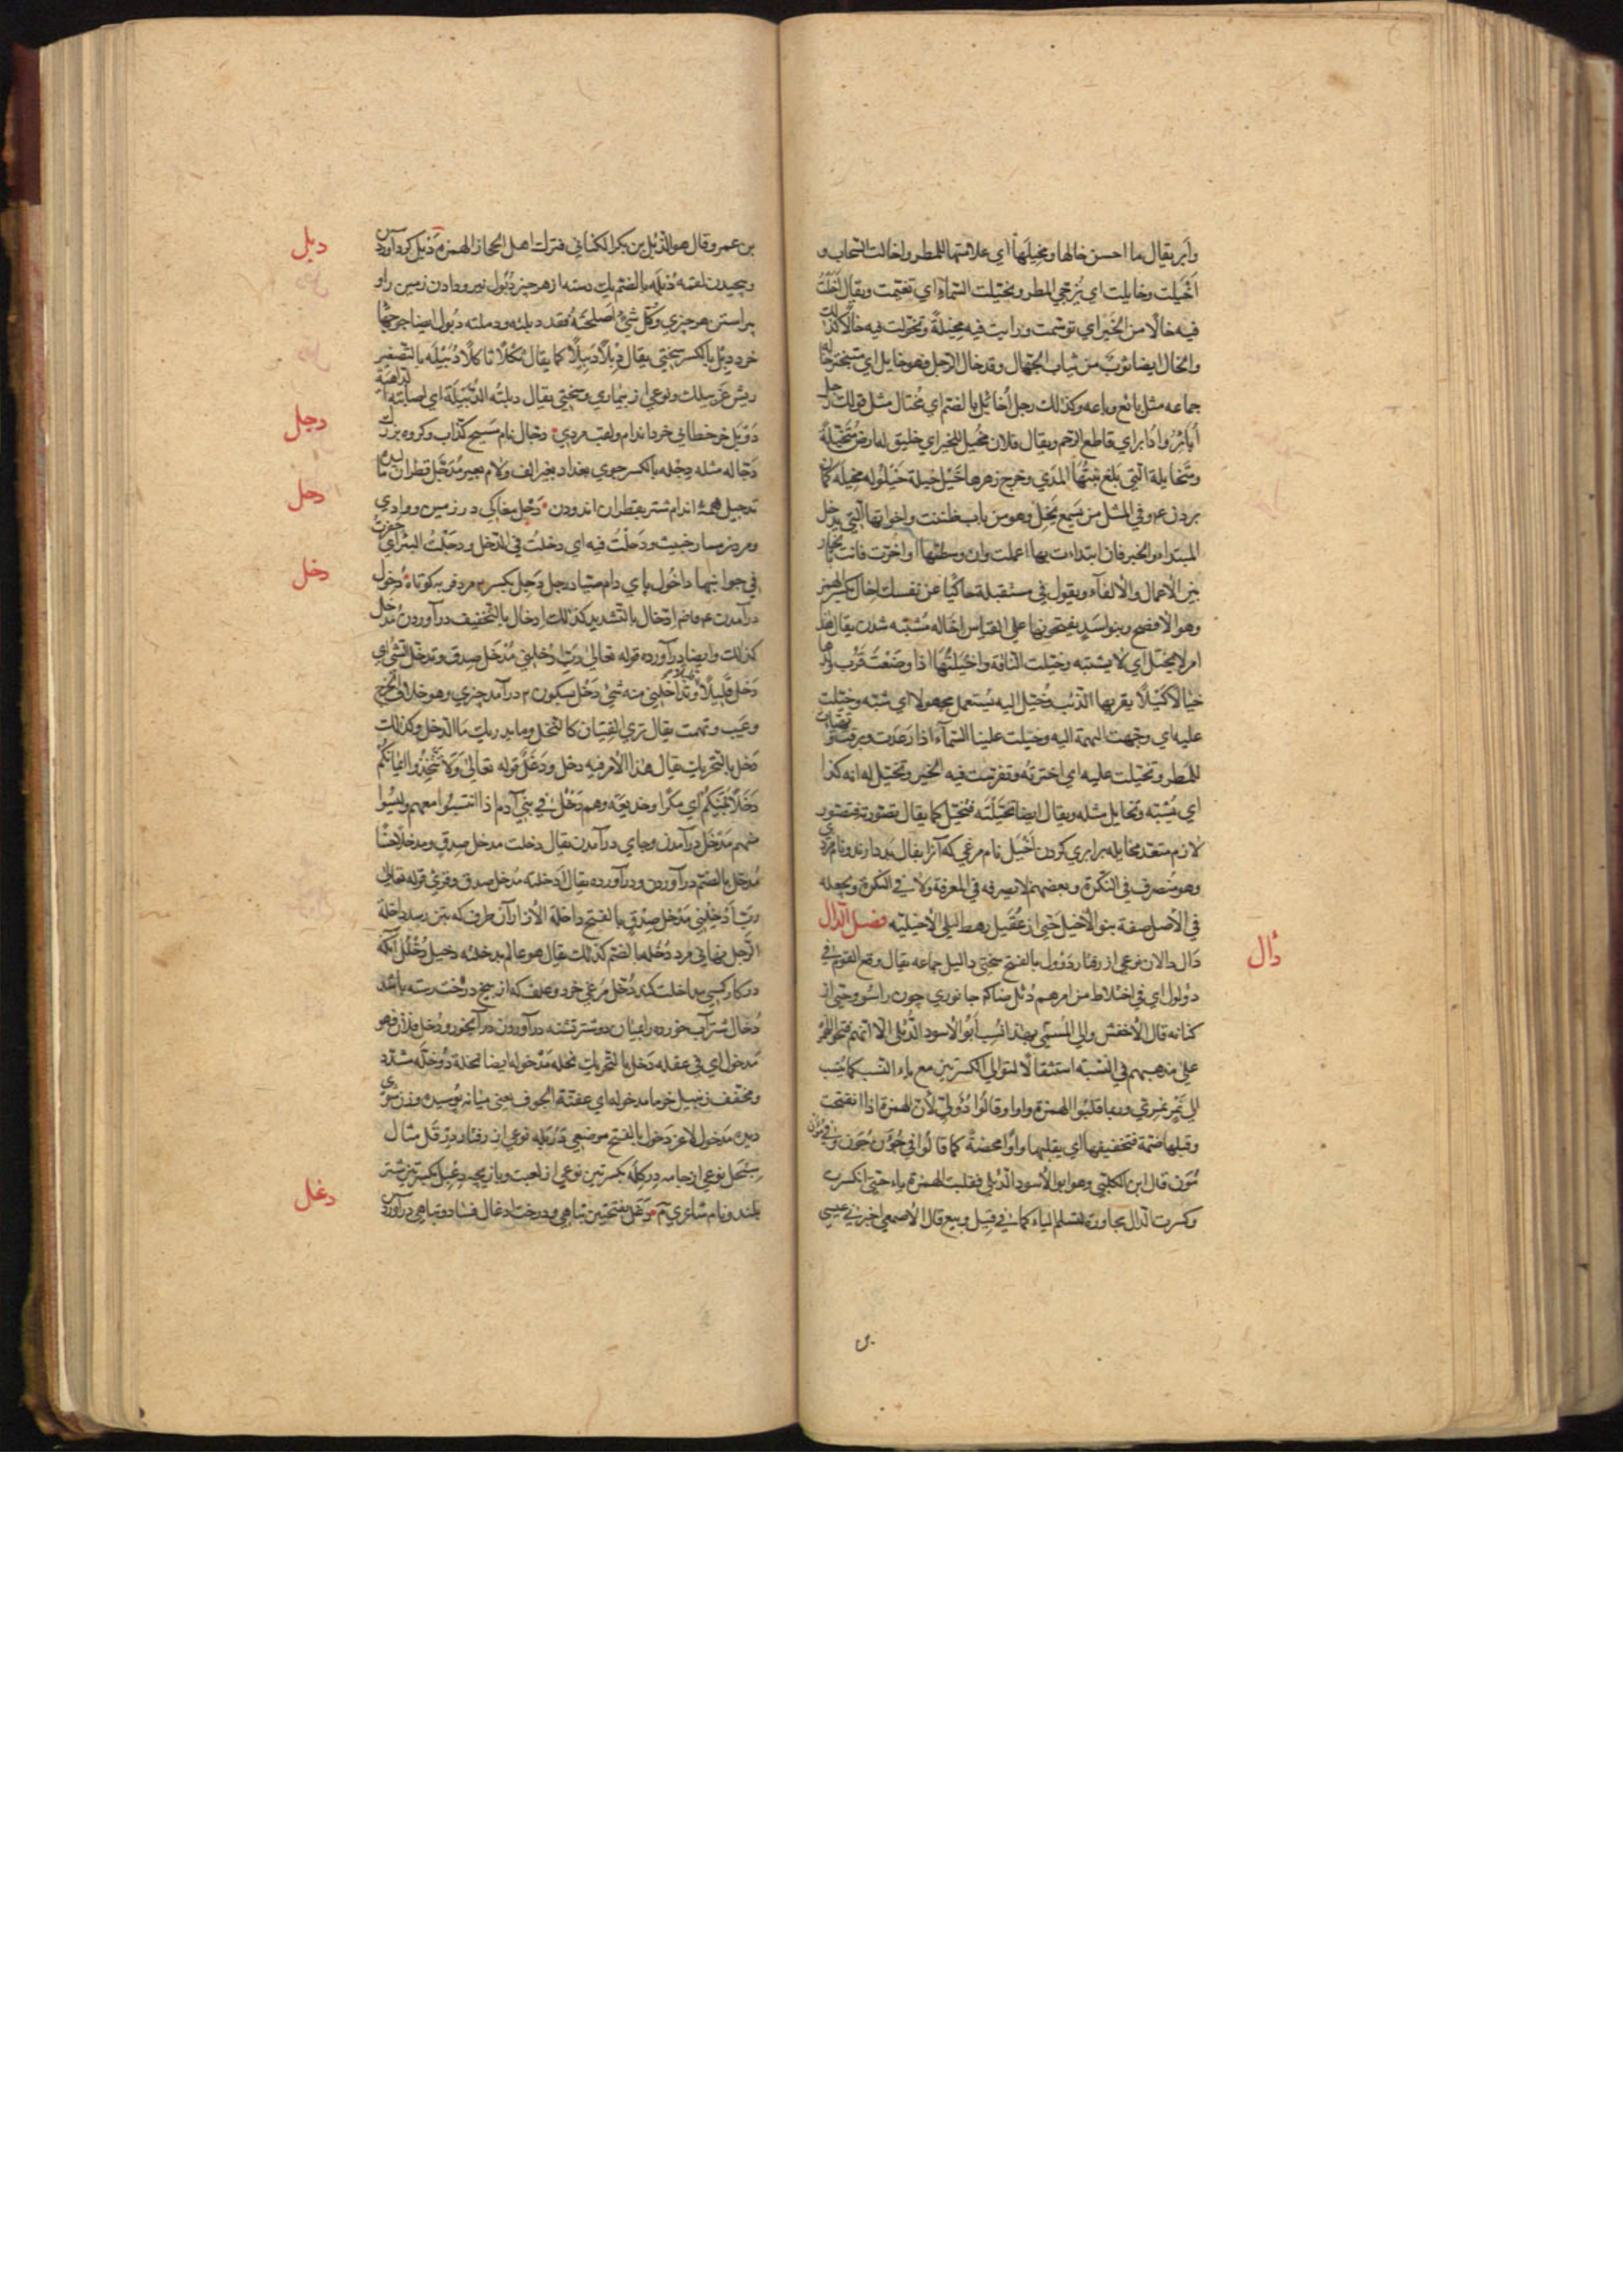 وابر يقال ما احسن خالها ومخيلتها اي علامتها للمطر واخالت السحاب و
اخيلت وخايلت اي ترجي المطر وتخيلت السمآء اي تغيمت ويقال اخلت
فيه خالًا من الخير اي توسمت ورايت فيه مخيلة وتخولت فيه خالا كذلك
والخال ايضا ثوب من ثياب الجهال وقد خال الرجل فهو خايل اي متبختر خاله
جماعه مثل بائع وباعه وكذلك رجل اخائل بالضم اي مختال مثل قولك رجل
اباتر وادابر اي قاطع الرحم ويقال فلان مخيل للخير اي خليق له ارض متخيلة
ومتخايلة التي بلغ نبتها المدي وخرج زهرها خيل خيلة خيلوله مخيله كمان
بردن ع م وفي المثل من يسمع يخل وهو من باب ظننت واخواتها التي يدخل
المبتداء والخبر فان ابتداءت بها اعملت وان وسطتها او اخرت فانت بالخيار
بين الاعمال والالغآء ويقول في مستقبله حاكيًا عن نفسك اخال بكسر الهمزه
وهو الافصح وبنو اسد يفتحونها علي القياس اخاله مشتبه شدن يقال هذا
امر لا يخيل اي لا يشتبه وخيلت الناقة واخيلتها اذا وضعت قرب ولدها
خيالا كيلا يقربها الذئب وخيل اليه يستعمل مجهولا اي شبه وخيلت
عليه اي وجهت التهمة اليه وخيلت علينا السمآء اذا رعدت وبرقت وتهيات
للمطر وتخيلت عليه اي اخترته وتفرست فيه الخير وتخيل له انه كذا
اي يشبه وتخايل مثله ويقال ايضا تخيلته فتخيل كما يقال تصورته فتصور
لازم متعد مخايله برابري كردن اخيل نام مرغي كه آنرا بفال بد دارند ونام مردي
وهو منصرف في النكرة وبعضهم لا يصرفه في المعرفة ولا في النكرة ويجعله
في الاصل صفة بنو الاخيل حي از عقيل رهط ليلي الاخيليه فصل الدال
دأل
دأل دالان نوعي از رفتار دؤول بالفتح سختي داليل جماعه يقال وقع القوم في
دؤلول اي في اختلاط من امرهم دئل ضاكم جانوري چون راسو وحي از
كنانه قال الاخفش والي المسمي بهذا نسب ابو الاسود الدؤلي الا انهم فتحوا الهمزة
علي مذهبهم في النسبة استثقالا لتوالي الكسرتين مع ياء النسب كما ينسب
الي نمر نمري وربما قلبوا الهمزة واوا وقالوا دولي لان الهمزة اذا انفتحت
وقبلها ضمة فتخفيفها اي يقلبها واوا محضة كما قالوا في جؤن جون وفي مؤن
مون قال ابن الكلبي وهو ابو الاسود الديلي فقلبت الهمزة ياء حتي انكسرت
وكسرت الدال مجاورة لتسلم الياء كما في قيل وبيع قال الاصمعي اخبرني عيسي
بن عمر وقال هو الدئل بن بكر الكناني فترك اهل الحجاز الهمزه
دبل
دبل كرد آوردن
وپيچيدن لقمه دبله بالضم يك دسته از هر چيز دبول نيرو دادن زمين را و
پيراستن هر چيزي وكل شئ اصلحته فقد دبلته ودملته دبول ايضا جويها
خرد دبل بالكسر سختي يقال دبلا دبيلا كما يقال ثكلا ثاكلا دبيله بالتصغير
ريش عز سلك ونوعي از بيماري وسختي يقال دبلته الدبيلة اي اصابته الداهية
دوبل خر خطائي خرد اندام ولقب مردي
دجل
دجال نام مسيح كذاب وكروه بزرك
دجاله مثله دجله بالكسر جوي بغداد بغير الف ولام بعير مدجل قطران ماليده
تدجيل همه اندام شتر بقطران اندودن
دحل
دحل مغاكي در زمين ووادي
ومرد بسيار خبيث ودحلت فيه اي دخلت في الدحل ودحلت البئر اي حفرت
في جوانبها داحول پاي دام صياد دحل دحل بكسر ۲ مرد فربه كوتاه
دخل
دخول
درآمدن ع م ض ادخال بالتشديد كذلك ادخال بالتخفيف درآوردن مدخل
كذلك وايضا درآورده قوله تعالي رب ادخلني مدخل صدق وتدخل الشئ اي
دخل قليلا قليلا وتداخلني منه شئ دخل بسكون ۲ درآمد چيزي وهو خلاف الخرج
وعيب وتهمت يقال تري الفتيان كالنخل وما يدريك ما الدخل وكذلك
دخل بالتحريك يقال هذا الامر فيه دخل ودغل قوله تعالي ولا تتخذوا ايمانكم
دخلا بينكم اي مكرا وخديعة وهم دخل في بني آدم اذا انتسبوا معهم وليسوا
منهم مدخل درآمدن وجاي درآمدن يقال دخلت مدخل صدق ومدخلا حسنا
مدخل بالضم درآوردن ودرآورده يقال ادخلته مدخل صدق وقرئ قوله تعالي
رب ادخلني مدخل صدق بالفتح داخلة الازار آن طرف كه بتن رسد داخلة
الرجل نهاني مرد دخله بالضم كذلك يقال هو عالم بدخلته دخيل دخلل آنكه
در كار كسي مداخلت كند دخل مرغي خرد وعلف كه از بيخ درخت رسته باشد
دخال شتر آب خورده را ميان دو شتر تشنه درآوردن در آبخور ودخل فلان فهو
مدخول اي في عقله دخل بالتحريك نخله مدخوله ايضا نخلة دوخله مشدد
ومخفف زنبيل خرما مدخوله اي عفنة الجوف يعني ميانه پوسيده وفرسوده
مدخول لاغر دخول بالفتح موضعي دربله نوعي از رفتار درقل مثال
سبحل نوعي از جامه دركله بكسرتين نوعي از لعبت وبازيچه دعبل بكسرتين شتر
بلند ونام شاعري م
دغل
دغل بفتحتين تباهي ودرخت ادغال فساد وتباهي درآوردن